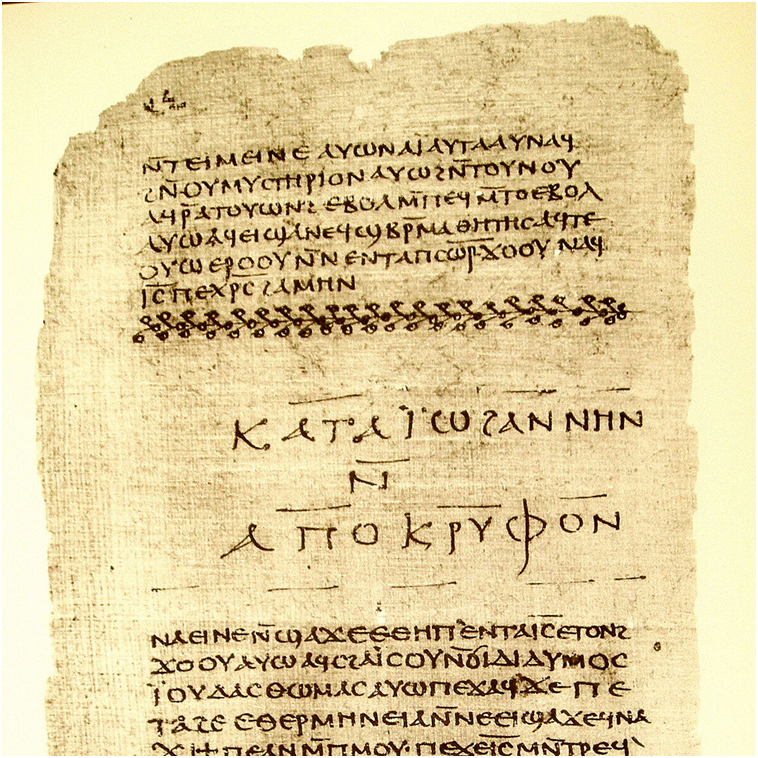 ⲛ̄ⲧⲉⲓⲙⲉⲓⲛⲉ ⲁⲩⲱ ⲛⲁⲓ̈ ⲁⲩⲧⲁⲁⲩ ⲛⲁϥ
ϩⲛ̄ⲟⲩⲙⲩⲥⲧⲏⲣⲓⲟⲛ ⲁⲩⲱ ϩⲛ̄ⲧⲟⲩⲛⲟⲩ
ⲁϥⲣ̄ⲁⲧⲟⲩⲱⲛϩ ⲉⲃⲟⲗ ⲙ̄ⲡⲉϥⲙ̄ⲧⲟ ⲉⲃⲟⲗ
ⲁⲩⲱ ⲁϥⲉⲓ ϣⲁ ⲛⲉϥϣⲃⲣ̄ⲙⲁⲑⲏⲧⲏⲥ ⲁϥⲧⲉ
ⲟⲩⲱ ⲉⲣⲟⲟⲩ ⲛ̄ⲛⲉⲛⲧⲁⲡⲥⲱ̅ⲣ ϫⲟⲟⲩ ⲛⲁϥ
ⲓ̅ⲥ̅ ⲡⲉⲭⲣⲥ ϩⲁⲙⲏⲛ
ⲕⲁⲧⲁ ⲓ̈ⲱϩⲁⲛⲛⲏⲛ
ⲛ̄
ⲁⲡⲟⲕⲣⲩⲫⲟⲛ
ⲛⲁⲉⲓ ⲛⲉ ⲛ̄ϣⲁϫⲉ ⲉⲑⲏⲡ ⲉⲛⲧⲁⲓ̅ⲥ̅ ⲉⲧⲟⲛϩ
ϫⲟⲟⲩ ⲁⲩⲱ ⲁϥⲥϩⲁⲓ̈ⲥⲟⲩ ⲛ̄ϭⲓ ⲇⲓⲇⲩⲙⲟⲥ
ⲓ̈ⲟⲩⲇⲁⲥ ⲑⲱⲙⲁⲥ ⲁⲩⲱ ⲡⲉϫⲁϥ ϫⲉ ⲡⲉ
ⲧⲁϩⲉ ⲉⲑⲉⲣⲙⲏⲛⲉⲓⲁ ⲛ̄ⲛⲉⲉⲓϣⲁϫⲉ ϥⲛⲁ
ϫⲓ ϯⲡⲉ ⲁⲛ ⲙ̄ⲡⲙⲟⲩ· ⲡⲉϫⲉⲓ̅ⲥ̅ ⲙⲛ̄ⲧⲣⲉϥ